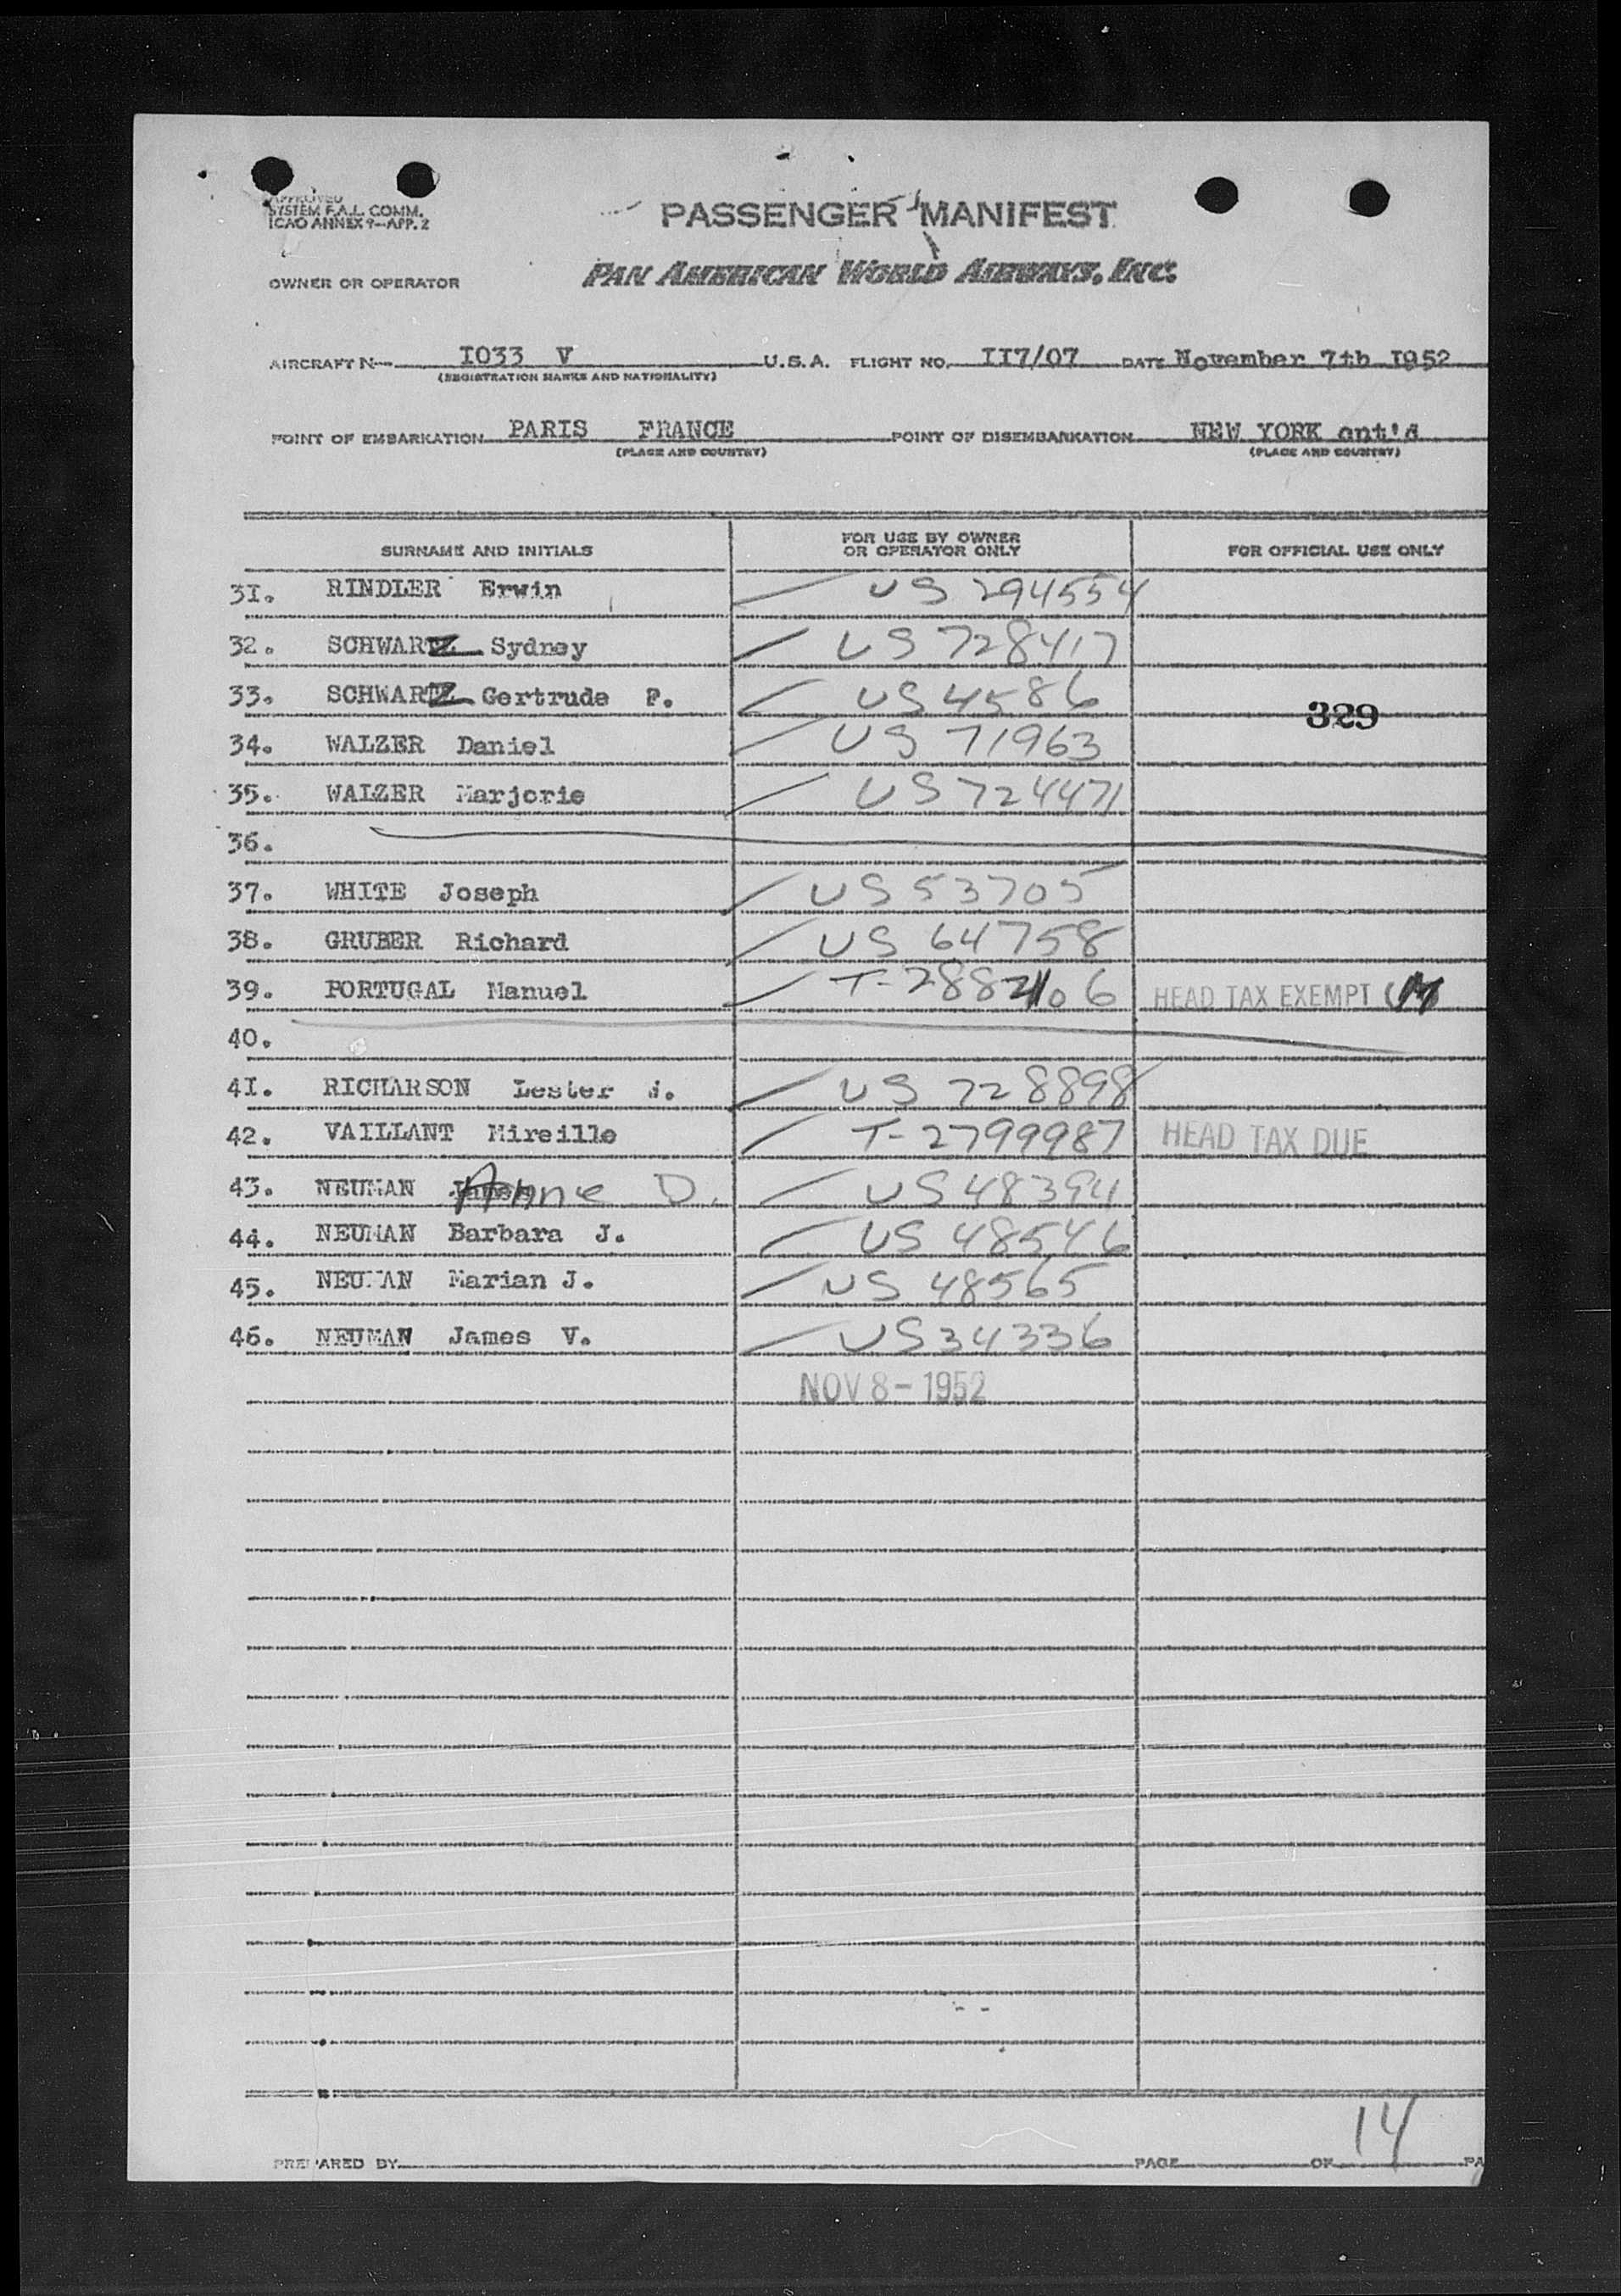 APPROVED
SYSTEM F.A.L. COMM.
ICAO ANNEX 9-APP. 2
PASSENGER MANIFEST
OWNER OR OPERATOR PAN AMERICAN WORLD AIRWAYS, INC.
AIRCRAFT N- I033 V U.S.A. FLIGHT NO. II7/07 DATE November 7th I952
(REGISTRATION MARKS AND NATIONALITY)
POINT OF EMBARKATION PARIS FRANCE POINT OF DISEMBARKATION NEW YORK cnt'd
(PLACE AND COUNTRY) (PLACE AND COUNTRY)
SURNAME AND INITIALS FOR USE BY OWNER OR OPERATOR ONLY FOR OFFICIAL USE ONLY
3I. RINDLER Erwin US 294554
32. SCHWARTZ Sydney US 728417
33. SCHWARTZ Gertrude F. US 4586
329
34. WALZER Daniel US 71963
35. WALZER Marjorie US 724471
36.
37. WHITE Joseph US 53705
38. GRUBER Richard US 64758
39. PORTUGAL Manuel HEAD TAX EXEMPT
40.
4I. RICHARSON Lester US 728898
42. VAILLANT Mireille T-2799987 HEAD TAX DUE
43. NEUMAN Anne D. US 48394
44. NEUMAN Barbara J. US 48546
45. NEUMAN Marian J. US 48565
46. NEUMAN James V. US 34336
NOV 8- 1952
PREPARED BY PAGE OF 14 PA